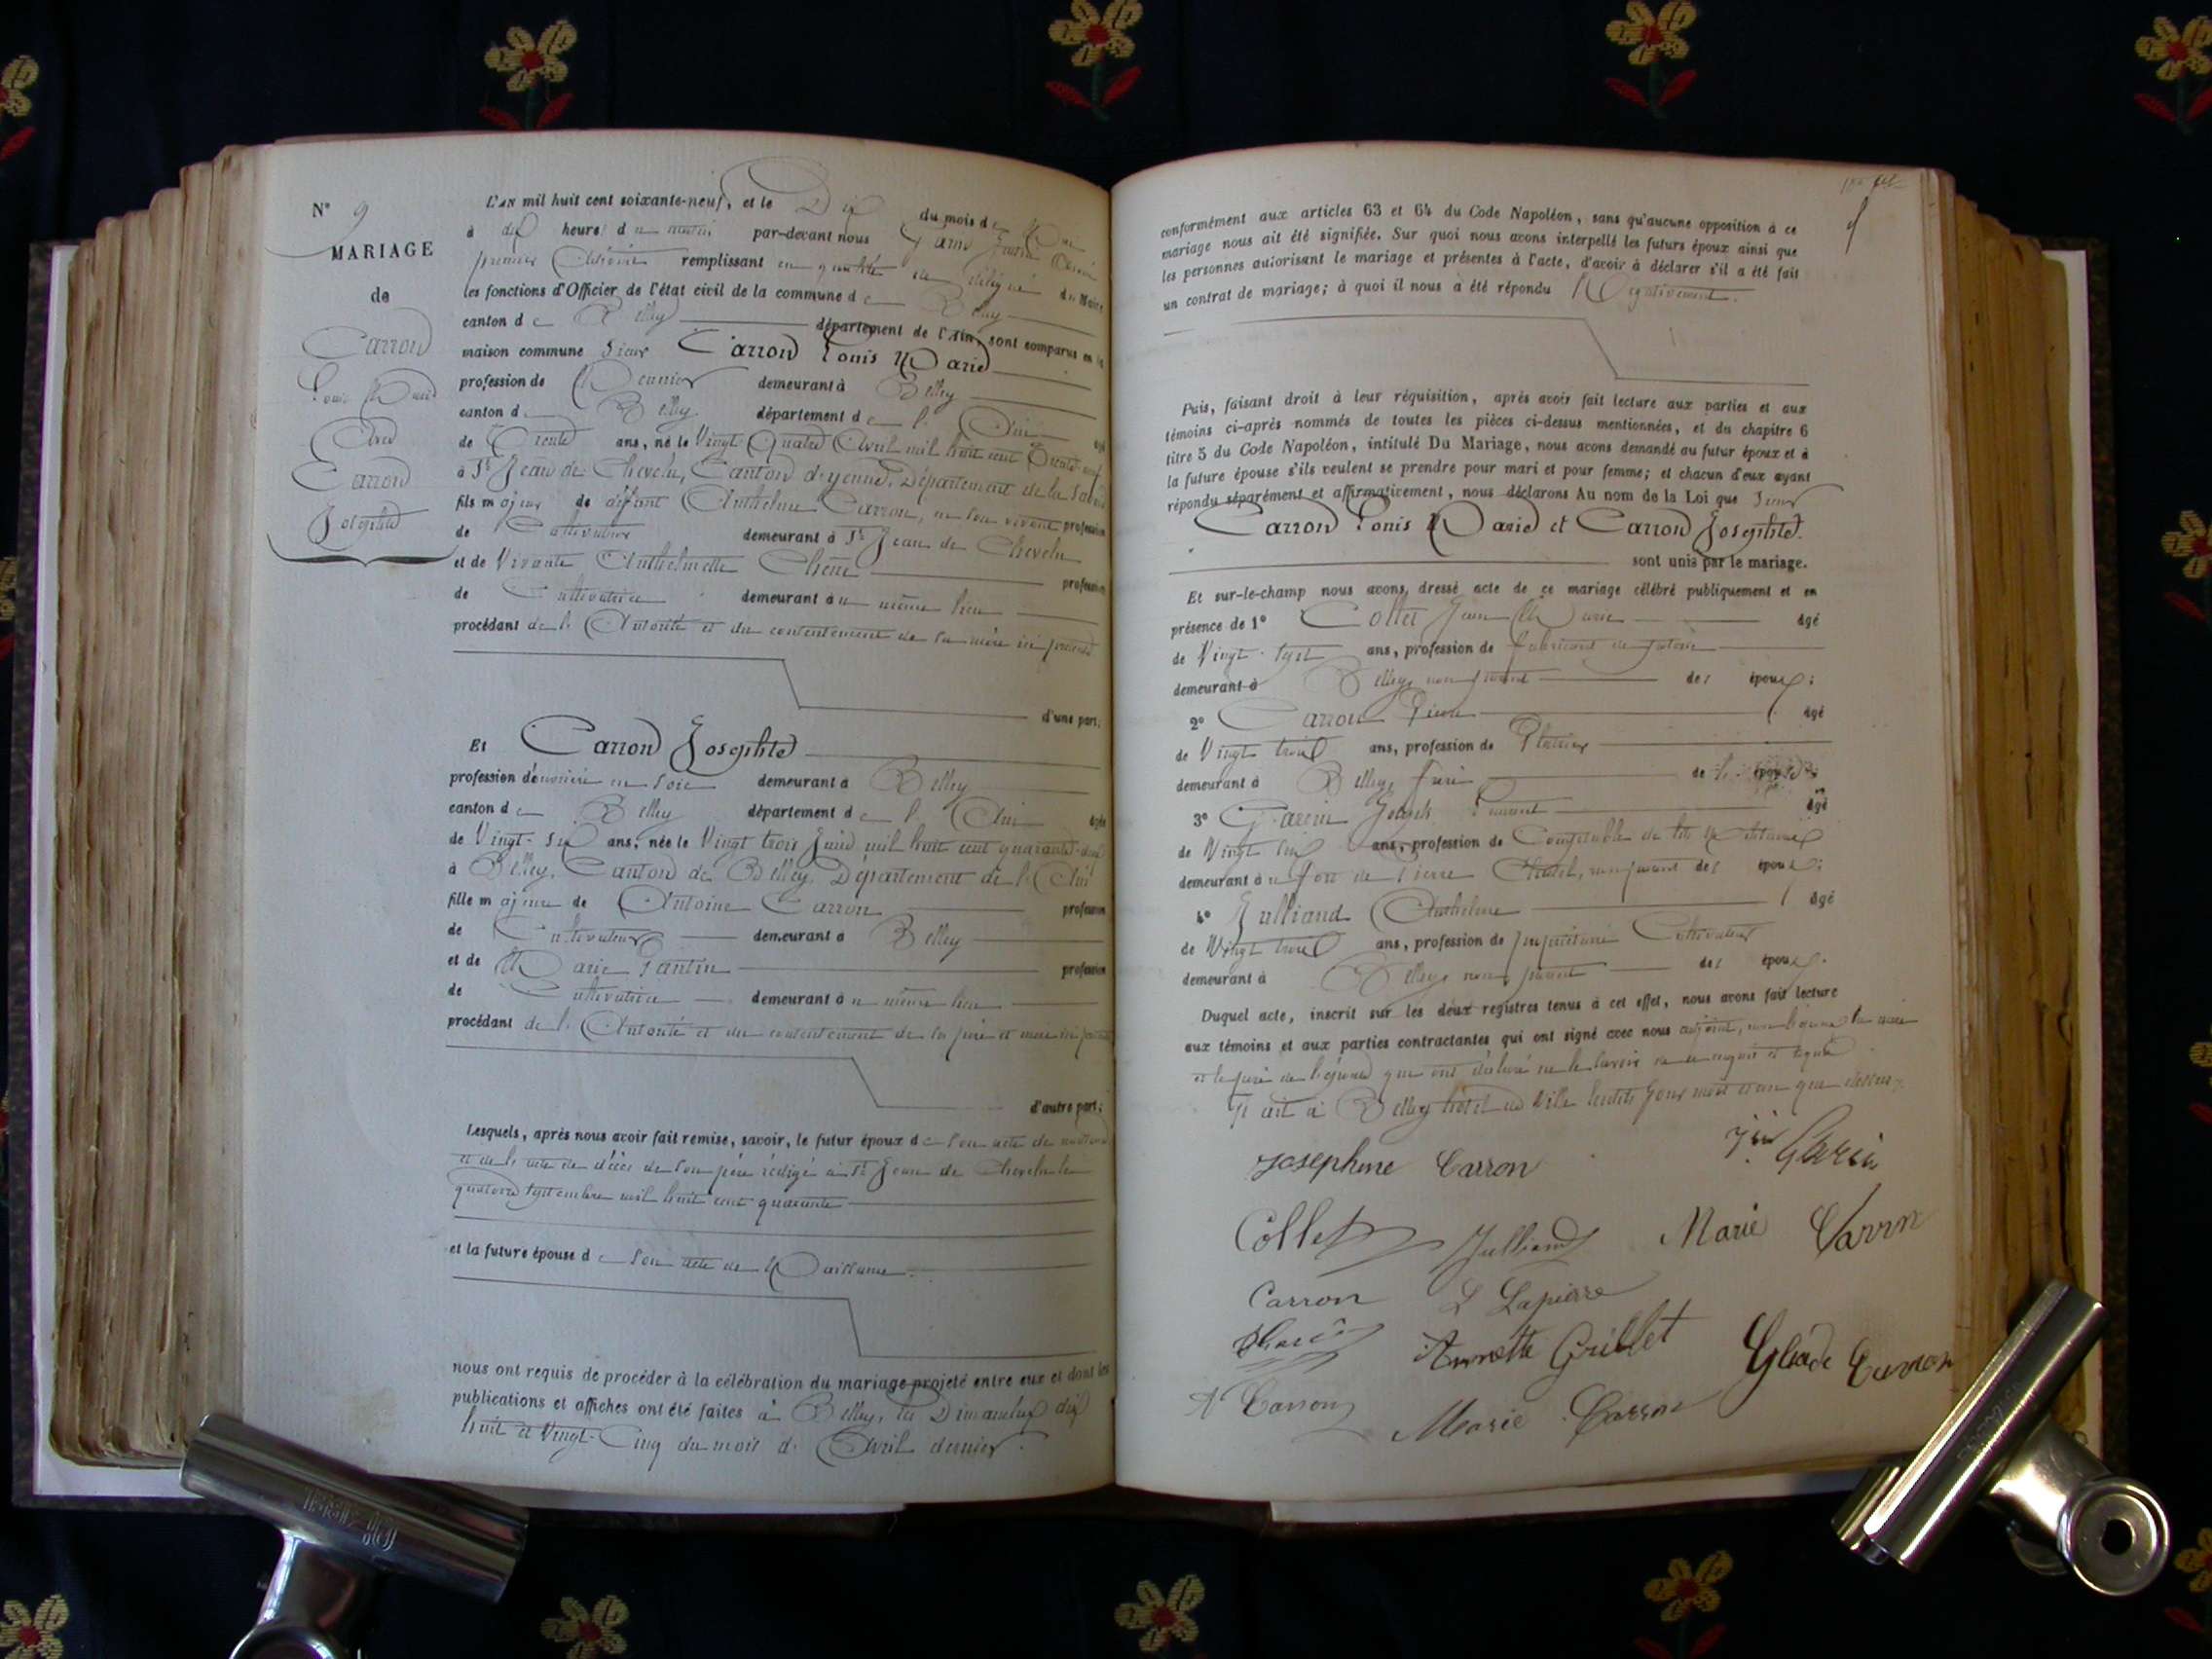 N° 9
MARIAGE
de
Carron
Louis Marie
Avec
Carron
Josephte
L'an mil huit cent soixante-neuf, et le Dix du mois de Mai
à dix heures du matin par-devant nous Garin
premier Adjoint remplissant en qualité de délégué du Maire
les fonctions d'Officier de l'état civil de la commune de Belley
canton de Belley département de l'Ain, sont comparus en la
maison commune Sieur Carron Louis Marie
profession de Meunier demeurant à Belley
canton de Belley département de l'Ain
de Trente ans, né le Vingt Quatre Avril mil huit cent Trente neuf
à St Jean de Chevelu, Canton d'yenne, Département de la Savoie
fils majeur de défunt Anthelme Carron, en son vivant profession
de Cultivateur demeurant à St Jean de Chevelu
et de Vivante Anthelmette Chêne profession
de Cultivatrice demeurant au même lieu
procédant de l'Autorité et du consentement de sa mère ici présente
d'une part;
Et Carron Josephte
profession d'ouvrière en soie demeurant à Belley
canton de Belley département de l'Ain âgée
de Vingt-six ans, née le Vingt trois Juin mil huit cent quarante-deux
à Belley, Canton de Belley, Département de l'Ain
fille majeure de Antoine Carron profession
de Cultivateur demeurant à Belley
et de Marie Santin profession
de Cultivatrice demeurant au même lieu
procédant de l'Autorité et du consentement de ses père et mère ici présents
d'autre part;
Lesquels, après nous avoir fait remise, savoir, le futur époux de son acte de naissance
et de l'acte de décès de son père rédigé à St Jean de Chevelu le
quatorze septembre mil huit cent quarante
et la future épouse de son acte de Naissance.
nous ont requis de procéder à la célébration du mariage projeté entre eux et dont les
publications et affiches ont été faites à Belley, les Dimanches dix
huit et Vingt-Cinq du mois d'Avril dernier.
conformément aux articles 63 et 64 du Code Napoléon, sans qu'aucune opposition à ce
mariage nous ait été signifiée. Sur quoi nous avons interpellé les futurs époux ainsi que
les personnes autorisant le mariage et présentes à l'acte, d'avoir à déclarer s'il a été fait
un contrat de mariage; à quoi il nous a été répondu Négativement.
Puis, faisant droit à leur réquisition, après avoir fait lecture aux parties et aux
témoins ci-après nommés de toutes les pièces ci-dessus mentionnées, et du chapitre 6
titre 5 du Code Napoléon, intitulé Du Mariage, nous avons demandé au futur époux et à
la future épouse s'ils veulent se prendre pour mari et pour femme; et chacun d'eux ayant
répondu séparément et affirmativement, nous déclarons Au nom de la Loi que Sieur
Carron Louis Marie et Carron Josephte.
sont unis par le mariage.
Et sur-le-champ nous avons dressé acte de ce mariage célébré publiquement et en
présence de 1° Collet Jean Marie âgé
de Vingt-sept ans, profession de fabricant de
demeurant à Belley non parent des époux;
2° Carron Pierre âgé
de Vingt trois ans, profession de Plâtrier
demeurant à Belley, frère de l'épouse;
3° Garin Joseph âgé
de Vingt six ans, profession de Comptable
demeurant au fort de Pierre Châtel, non parent des époux;
4° Julliand Anthelme âgé
de Vingt trois ans, profession de propriétaire Cultivateur
demeurant à Belley non parent des époux.
Duquel acte, inscrit sur les deux registres tenus à cet effet, nous avons fait lecture
aux témoins et aux parties contractantes qui ont signé avec nous adjoint, non l'époux la mère
et le père de l'épouse qui ont déclaré ne le savoir de ce requis et signé
Fait à Belley hôtel de Ville lesdits jour mois et an que dessus
Josephine Carron
Garin
Collet Julliand Marie Carron
Carron L Lapierre
Annette Grillet
A Carron Marie Carron